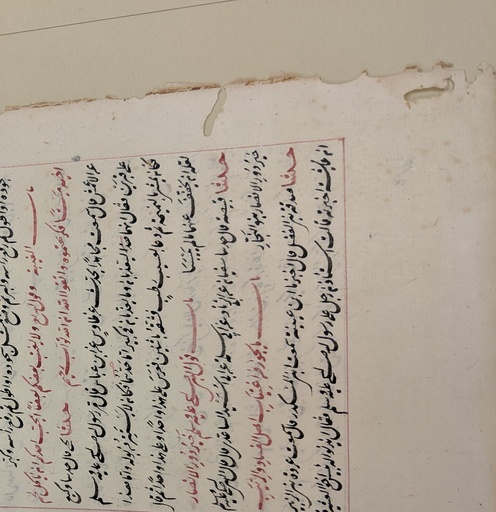 جوده او اطول ثم رفع رأسه وكبر ثم وضع مثل سجوده او اطول ثم رفع رأسه وكبر
باب الغيبة وقول الله ولا يغتب بعضكم بعضا ايحب احدكم ان ياكل لحم
اخيه ميتا فكرهتموه واتقوا الله ان الله تواب رحيم حدثنا يحيى قال حدثنا وكيع
عن الاعمش قال سمعت مجاهدا يحدث عن طاوس عن ابن عباس قال مر رسول الله صلى الله عليه وسلم
على قبرين فقال انهما ليعذبان وما يعذبان في كبير اما هذا فكان لا يستتر من بوله واما هذا
فكان يمشي بالنميمة ثم دعا بعسيب رطب فشقه باثنين فغرس على هذا واحدا وعلى هذا واحدا ثم قال
لعله ان يخفف عنهما ما لم ييبسا باب قول النبي صلى الله عليه وسلم خير دور الانصار
حدثنا قبيصة قال حدثنا سفيان عن ابي الزناد عن ابي سلمة عن ابي اسيد الساعدي قال قال النبي صلى الله عليه وسلم
خير دور الانصار بنو النجار باب ما يجوز من اغتياب اهل الفساد والريب
حدثنا صدقة بن الفضل قال اخبرنا ابن عيينة سمعت ابن المنكدر قال سمعت عروة بن الزبير
ان عائشة اخبرته قالت استاذن رجل على رسول الله صلى الله عليه وسلم فقال ايذنوا له بئس اخو العشيرة